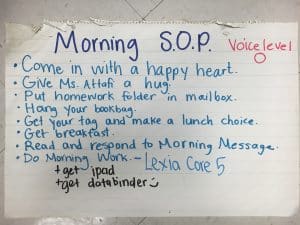 Morning S.O.P.
Voice level
O
• Come in with a happy heart.
• Give Ms. Attafi a hug.
• Put homework folder in mailbox.
• Hang your bookbag.
• Get your tag and make a lunch choice.
• Get breakfast.
• Read and respond to Morning Message.
• Do Morning Work. - Lexia Core 5
+get ipad
+get databinder